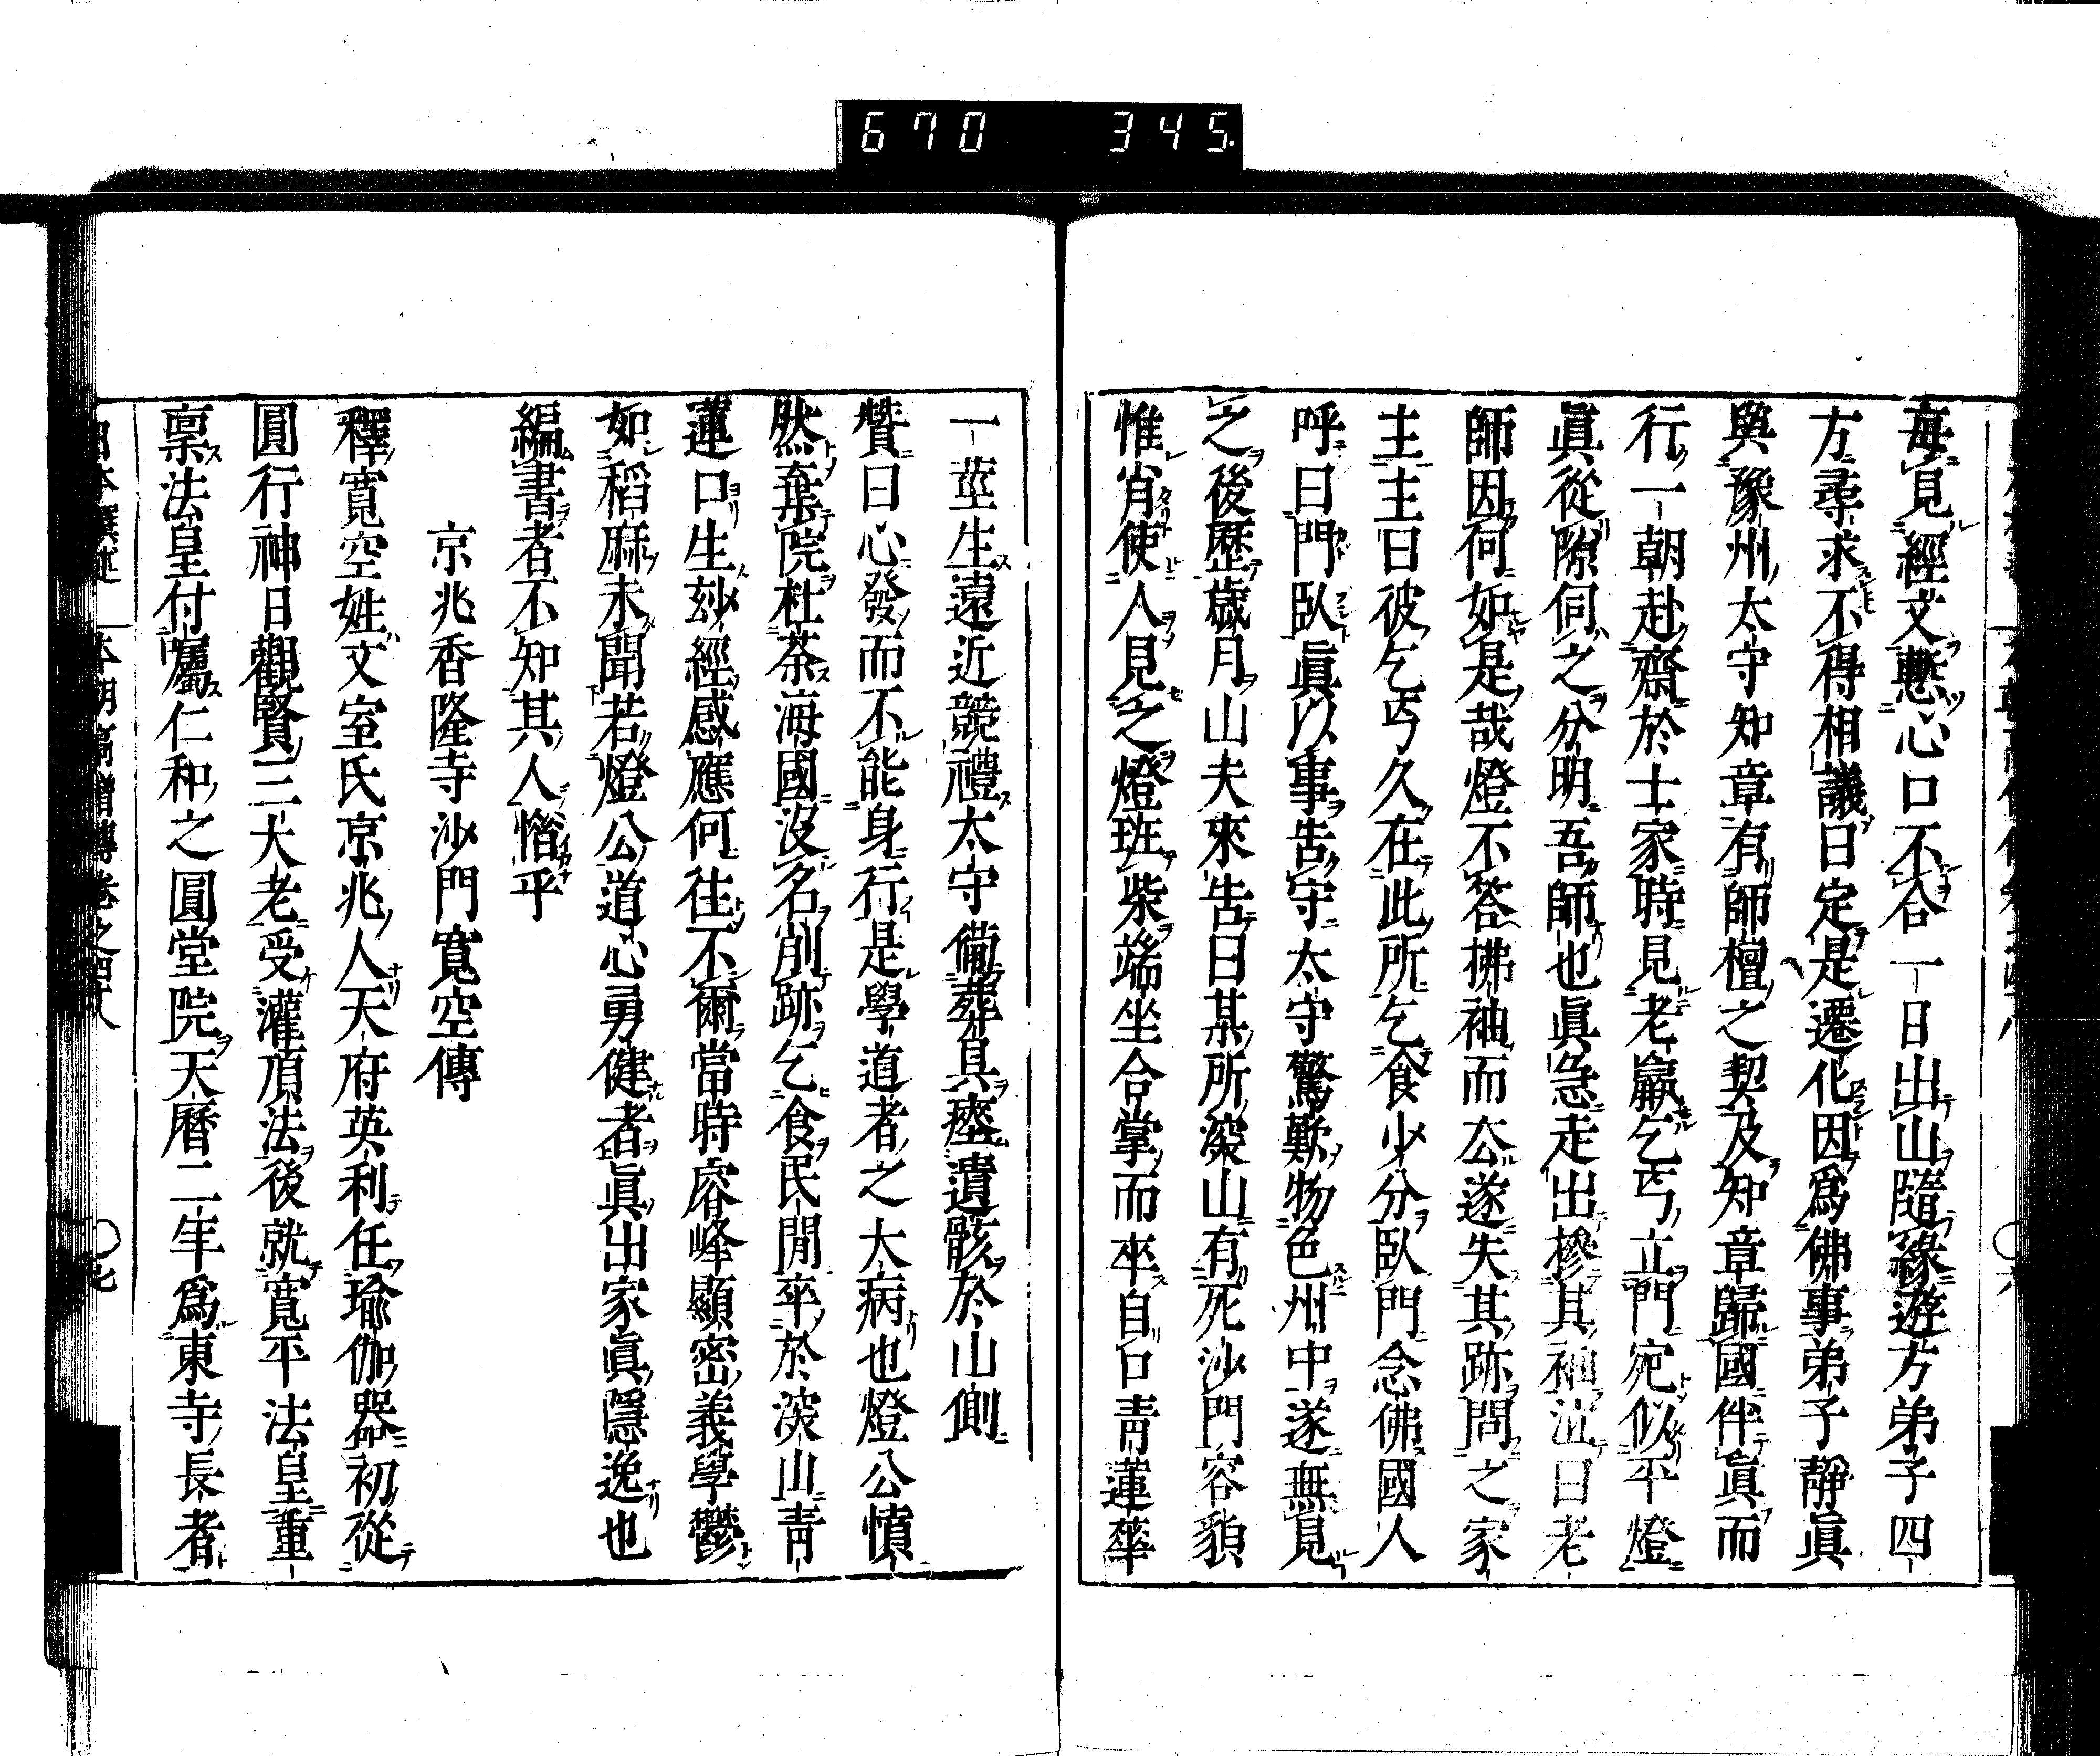 670 345
每見經文慙心口不合一日出山隨緣遊方弟子四
方尋求不得相議曰定是遷化因爲佛事弟子靜眞
與豫州太守知章有師檀之契及知章歸國伴眞而
行一朝赴齋於士家時見老羸乞丐立門宛似平燈
眞從隙伺之分明吾師也眞急走出摻其袖泣曰老
師因何如是哉燈不答拂袖而厺遂失其跡問之家
主主曰彼乞丐久在此所乞食少分臥門念佛國人
呼曰門臥眞以事告守太守驚歎物色州中遂無見
之後歷歲月山夫來告曰某所深山有死沙門容貌
惟肖使人見之燈班柴端坐合掌而卒自口青蓮華
一莖生遠近競禮太守備葬具瘞遺骸於山側
贊曰心發而不能身行是學道者之大病也燈公憤
然棄院杜荼海國沒名削跡乞食民間卒於深山青
蓮口生玅經感應何徃不爾當時睿峰顯密義學鬱
如稻麻未聞若燈公道心勇健者眞出家眞隱逸也
編書者不知其人惛乎
京兆香隆寺沙門寬空傳
釋寬空姓文室氏京兆人天府英利任瑜伽器初從
圓行神日觀賢三大老受灌頂法後就寬平法皇重
稟法皇付囑仁和之圓堂院天曆二年爲東寺長者
日本撰述 本朝高僧傳卷之四八 七